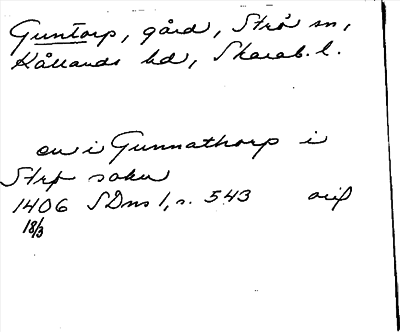 Guntorp, gård, Strö sn,
Kållands hd, Skarab. l.
en i Gunnathorp i
Strø sokn
1406 SDns 1, s. 543 orig
18/3